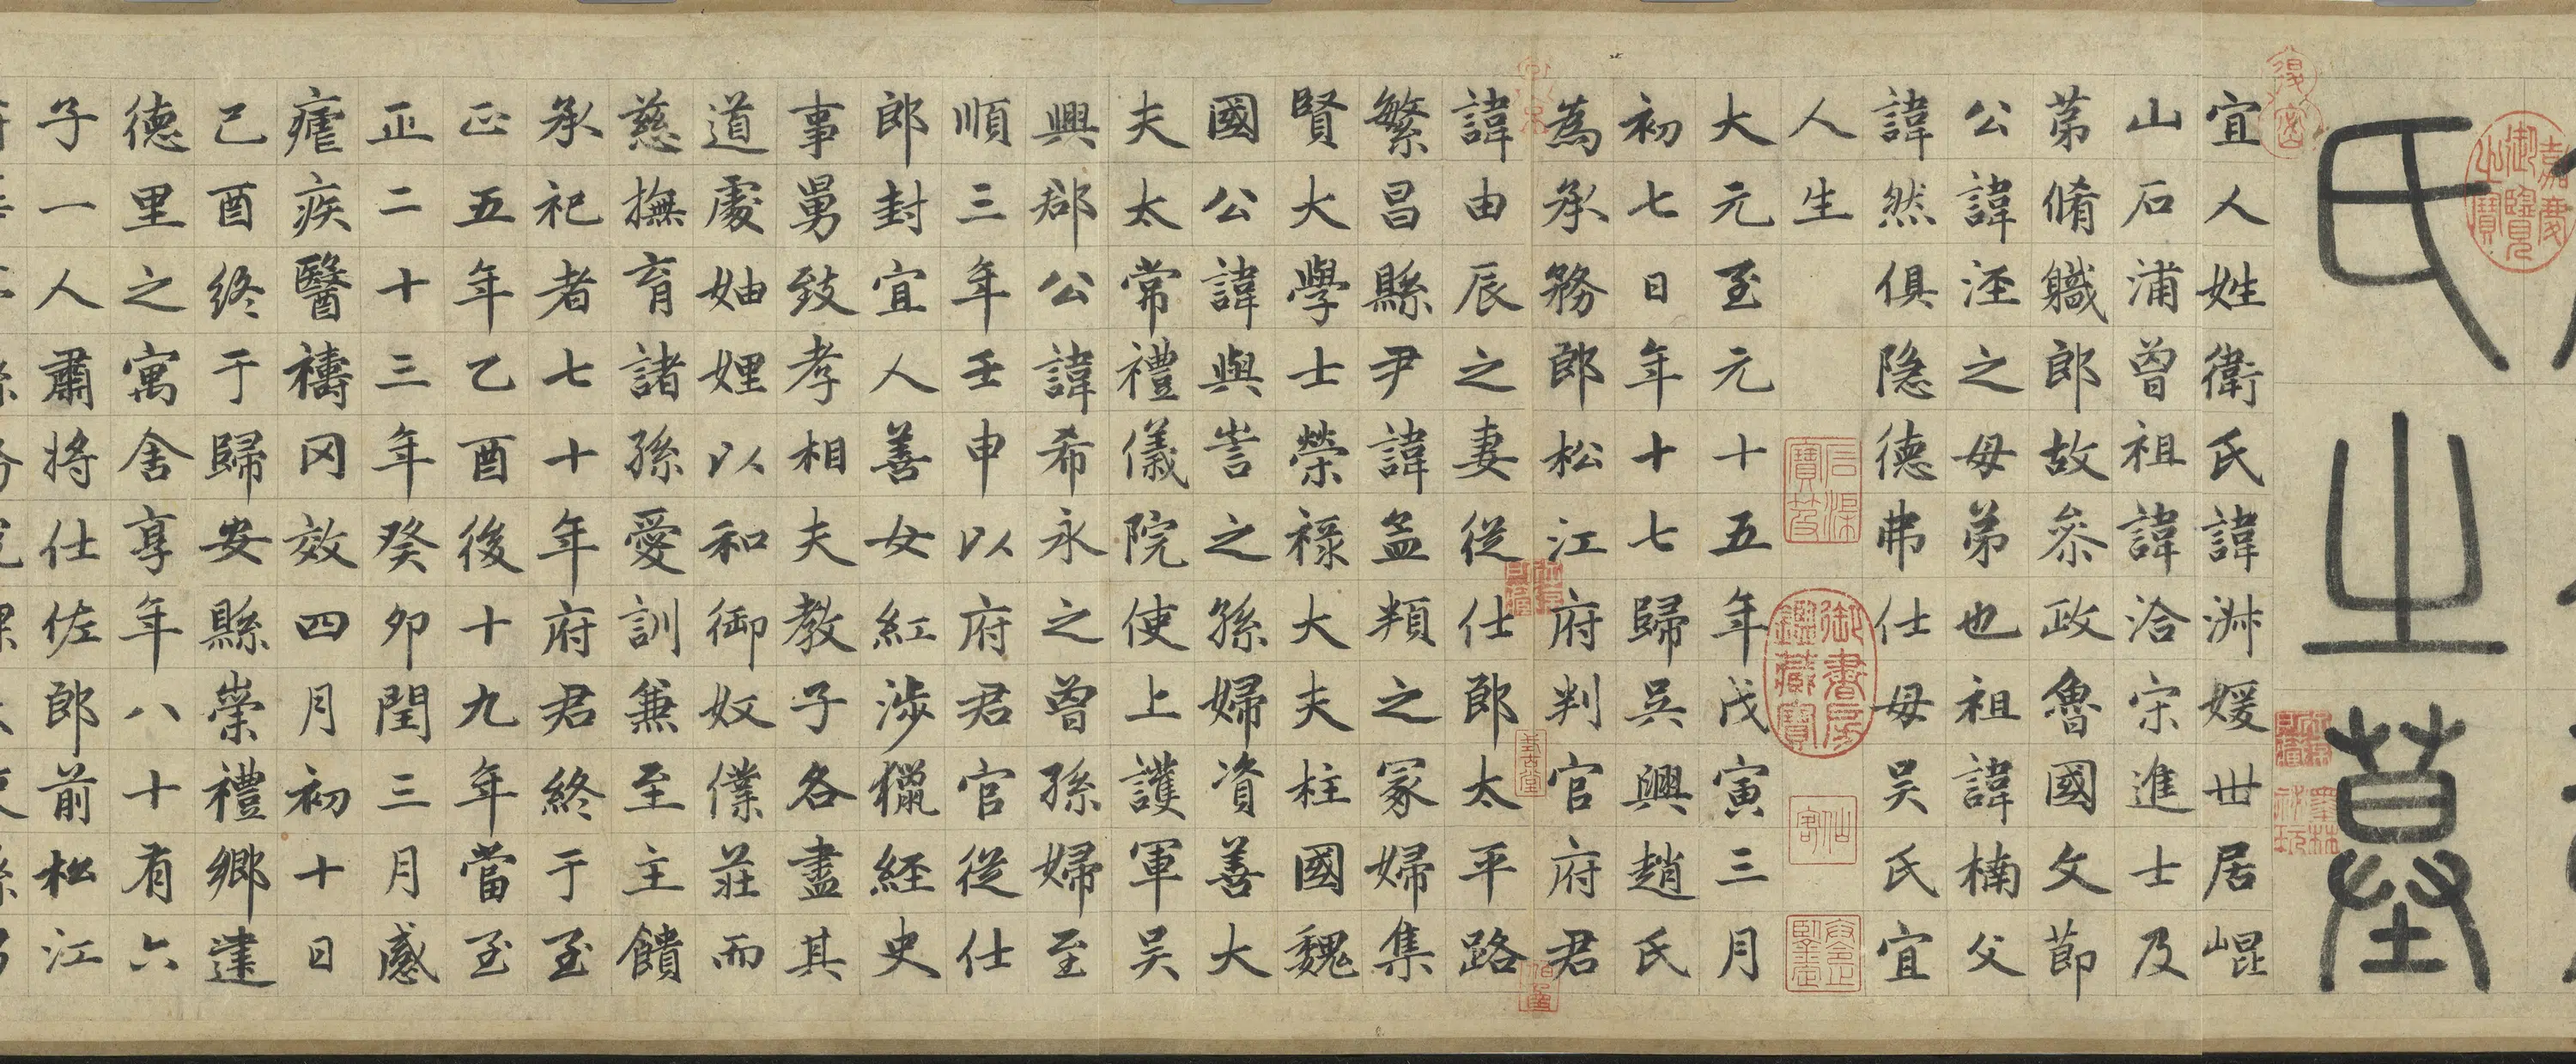 氏之墓
宜人姓衛氏諱淑媛世居崐
山石浦曾祖諱洽宋進士及
第脩職郎故叅政魯國文節
公諱涇之母弟也祖諱楠父
諱然俱隐德弗仕母吴氏宜
人生
大元至元十五年戊寅三月
初七日年十七歸吳興趙氏
為承務郎松江府判官府君
諱由辰之妻從仕郎太平路
繁昌縣尹諱孟頖之冢婦集
賢大學士榮祿大夫柱國魏
國公諱與訔之孫婦資善大
夫太常禮儀院使上護軍吴
興郡公諱希永之曾孫婦至
順三年壬申以府君官從仕
郎封宜人善女紅涉獵經史
事舅致孝相夫教子各盡其
道處妯娌以和御奴僕莊而
慈撫育諸孫愛訓兼至主饋
承祀者七十年府君終于至
正五年乙酉後十九年當至
正二十三年癸卯閏三月感
瘧疾醫禱罔效四月初十日
己酉終于歸安縣崇禮鄉建
德里之寓舍享年八十有六
子一人肅將仕佐郎前松江